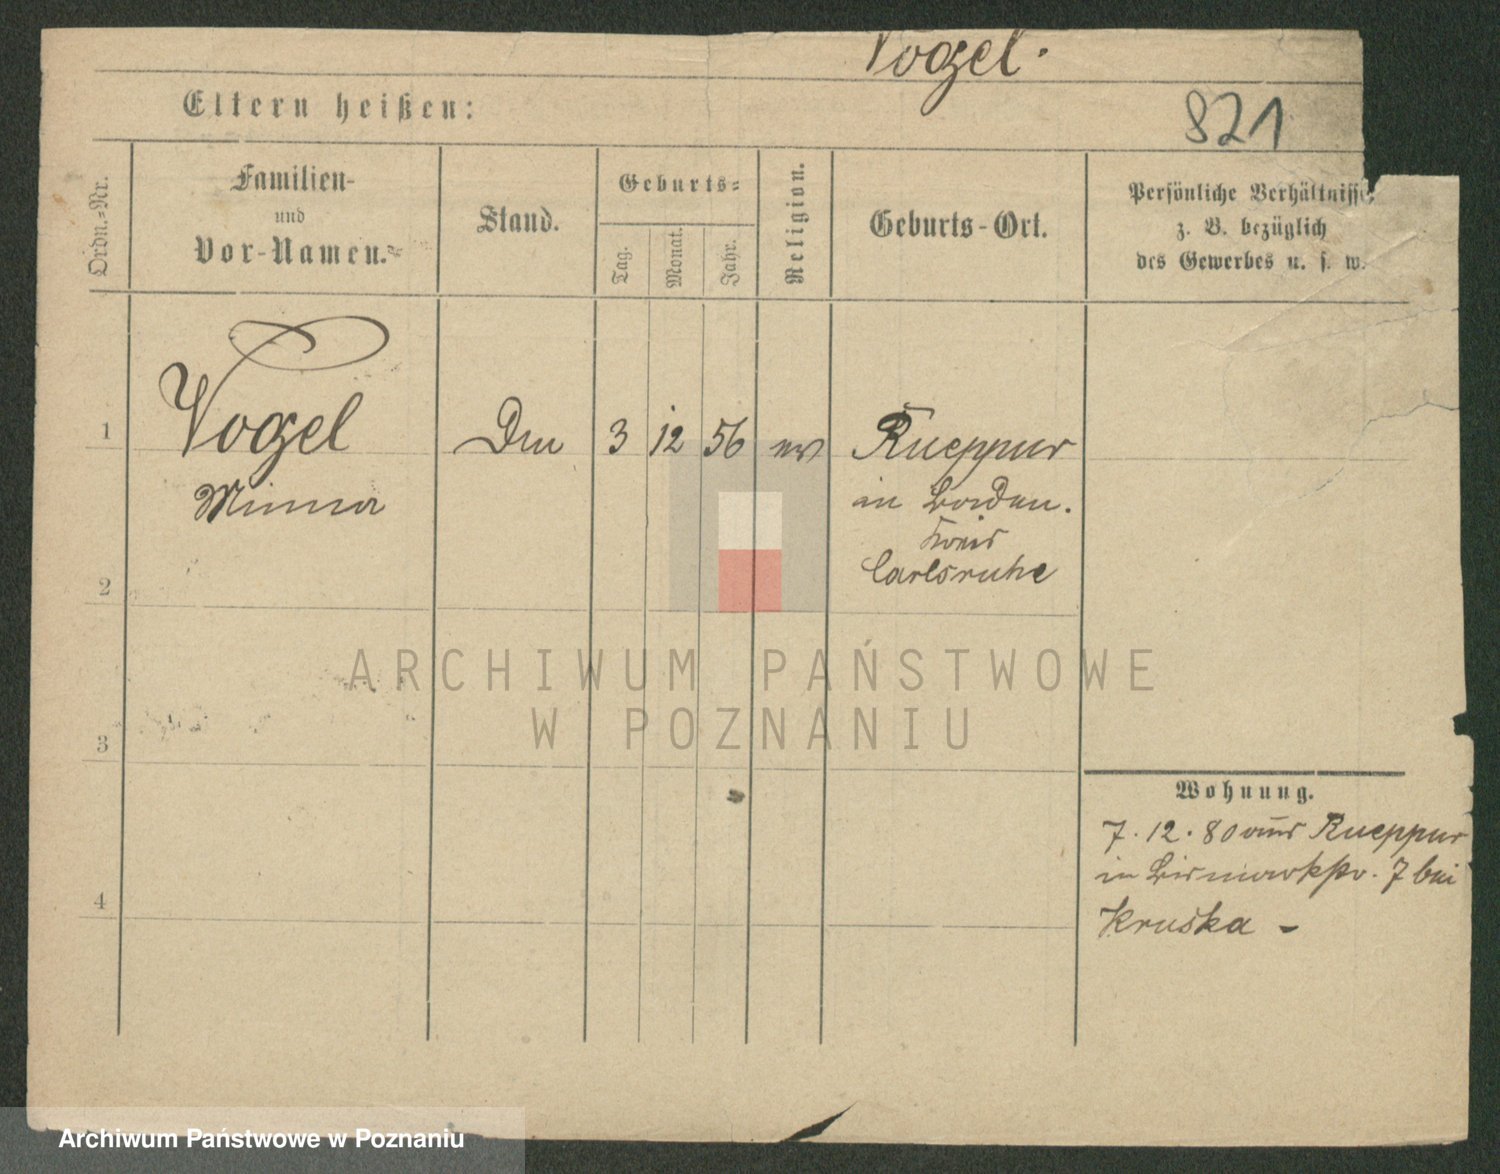 Vogel.
821
Eltern heißen:
Ordn.-Nr.
Familien-
und
Vor-Namen.
Stand.
Geburts-
Tag.
Monat.
Jahr.
Religion.
Geburts-Ort.
Persönliche Verhältnisse,
z. B. bezüglich
des Gewerbes u. s. w.
1
Vogel
3 12 56 ev
Rueppur
Minna
in Baden.
Kreis
Carlsruhe
2
3
4
Wohnung.
7.12.80 aus Rueppur
in Bismarkstr. 7 bei
Kruska -
ARCHIWUM PAŃSTWOWE
W POZNANIU
Archiwum Państwowe w Poznaniu